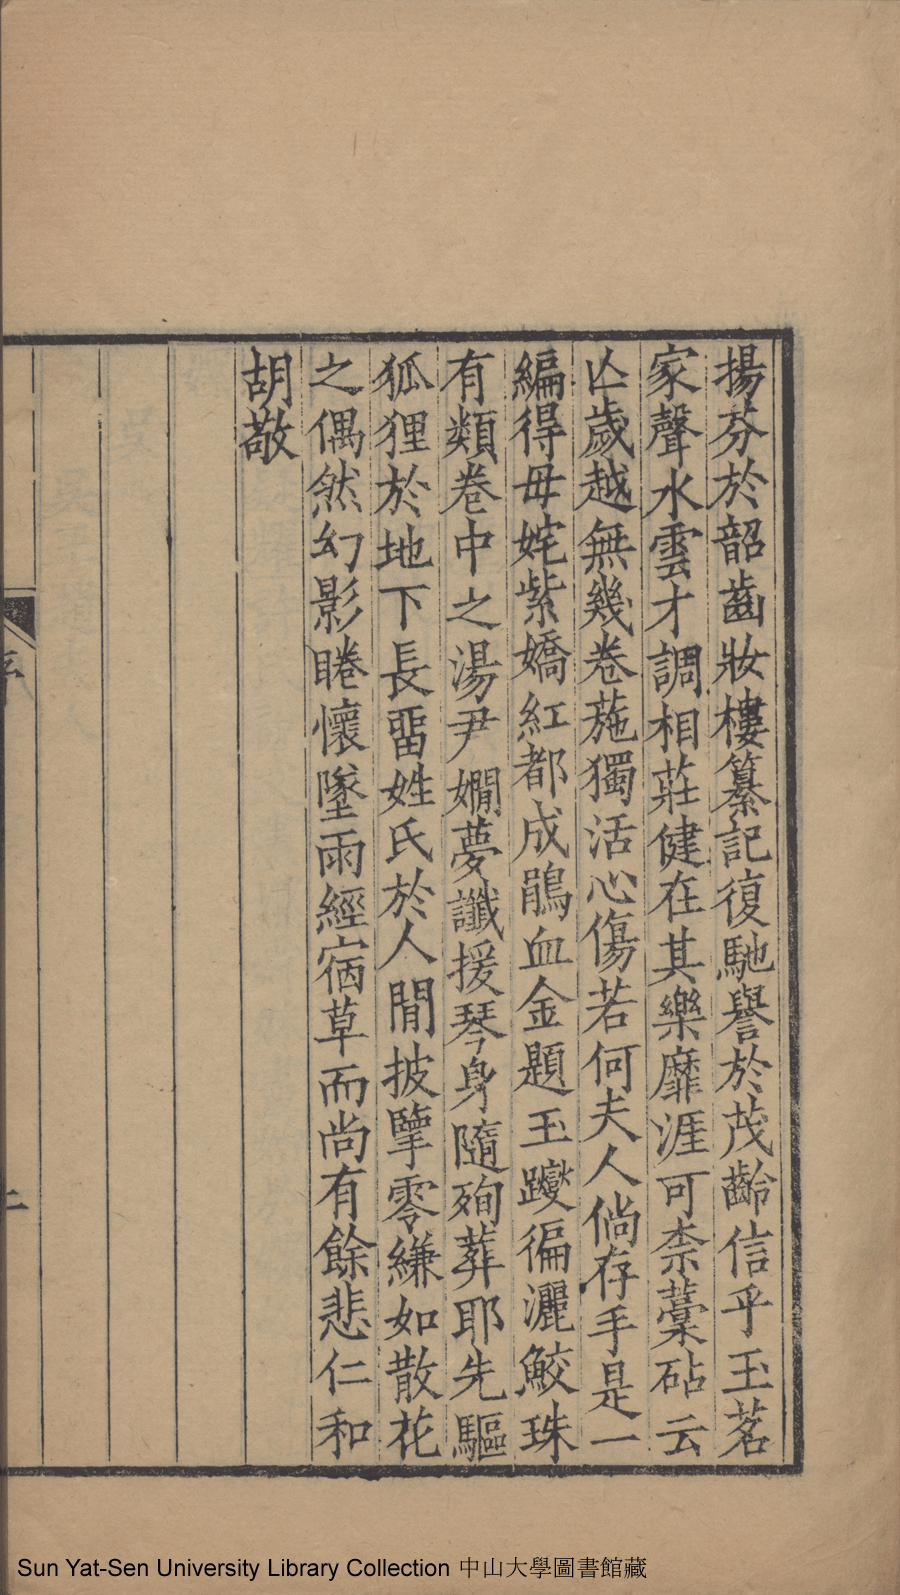 揚芬於韶齒妝樓纂記復馳譽於茂齡信乎玉茗
家聲水雲才調相莊健在其樂靡涯可柰藁砧云
亾歲越無幾卷葹獨活心傷若何夫人倘存手是一
編得毋姹紫嬌紅都成鵑血金題玉躞徧灑鮫珠
有類卷中之湯尹嫺夢讖援琴身隨殉葬耶先驅
狐狸於地下長畱姓氏於人閒披擥零縑如散花
之偶然幻影睠懷墜雨經宿草而尚有餘悲仁和
胡敬
序
二
Sun Yat-Sen University Library Collection 中山大學圖書館藏